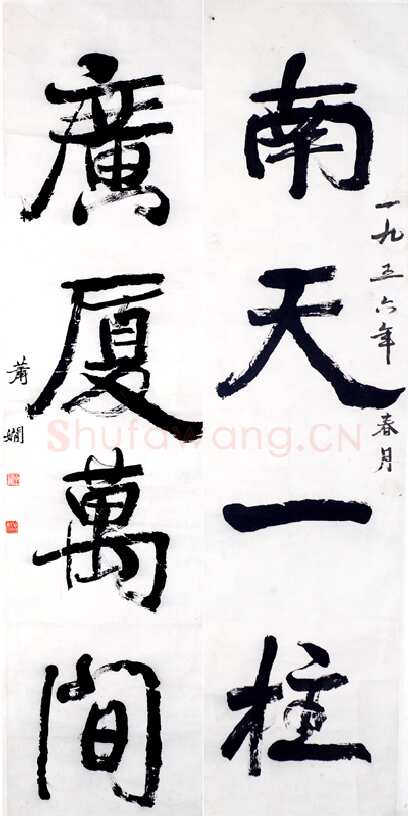 一九五六年春月
南天一柱
廣厦萬間
蕭嫺
Shufawang.CN